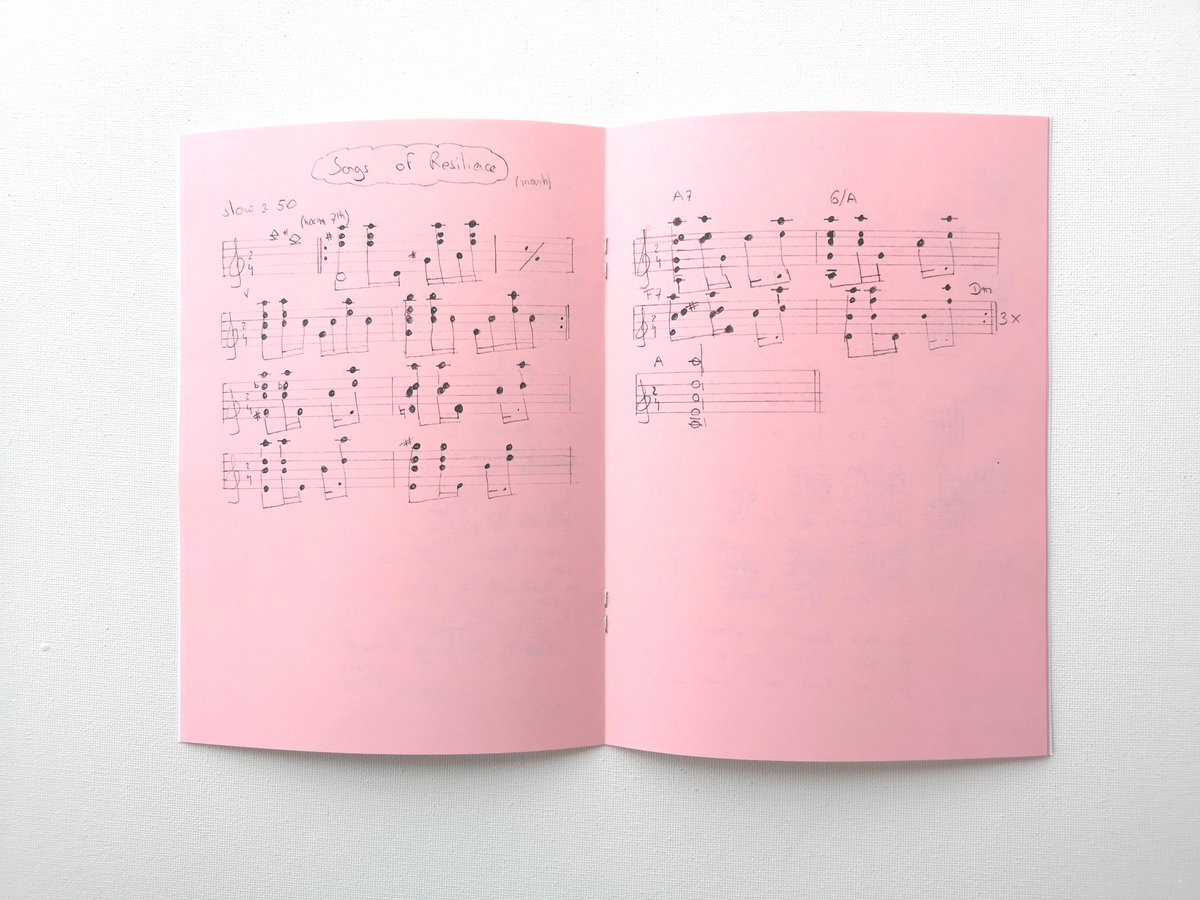 Songs of Resilience
slow 2 50
(harm 7th)
V
2
4
2
4
2
4
2
4
A7
G/A
2
4
F7
Dm
2
4
3x
A
2
4